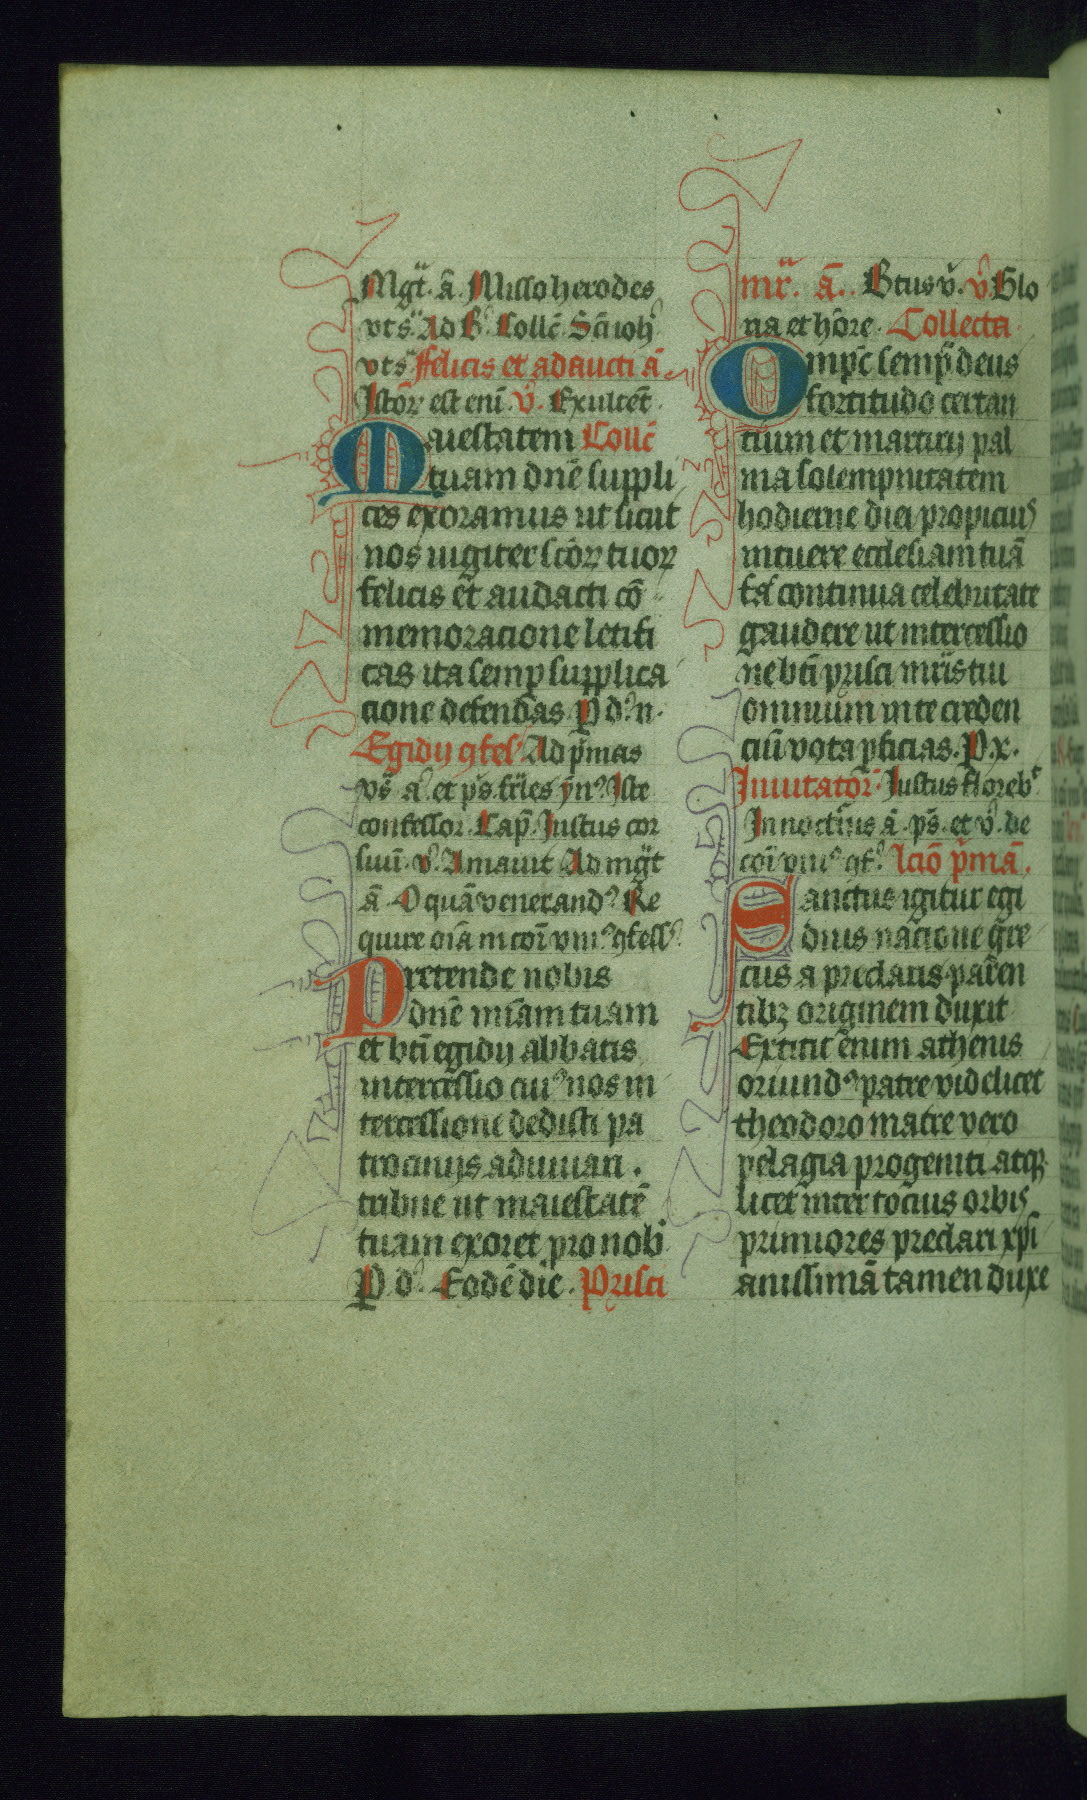 Mgt̃. a᷑. Misso herodes
vts̃ Ad b᷑. Collc̃ Sc̃i ioh᷑
vts̃ Felicis et adaucti a᷑.
Istoꝝ est eni᷑. v᷑. Exultet᷑
Maiestatem Collc̃
tuam dne᷑ suppli
ces exoramus ut sicut
nos iugiter sc̃oꝝ tuoꝝ
felicis et audacti co᷑
memoracione letifi
cas ita semꝑ supplica
cione defendas P d᷑. n.
Egidij ꝯfes᷑ Ad p᷑mas
vs̃ a᷑ et ps̃. fr̃les ẏn᷑. Iste
confessor. Cap̃. Iustus cor
suu᷑. v᷑. Amauit Ad mgt̃
a᷑ O qua᷑ venerand᷑ Re
quire oĩa in coĩ vni᷑ ꝯfess᷑.
Pretende nobis
dne᷑ mĩam tuam
et bt̃i egidij abbatis
intercessio cui᷑ nos in
tercessione dedisti pa
trocinijs adiuuari.
tribue ut maiestate᷑
tuam exoret pro nob᷑
P d᷑. Eode᷑ die. Prisci
mr̃. a᷑. Btus v᷑. v᷑. Glo
ria et ho᷑re. Collecta
Ompc̃ semp̃ deus
fortitudo certan
cium et martirij pal
ma solempnitatem
hodierne diei propicius
intuere ecclesiam tua᷑
fac᷑ continua celebritate
gaudere ut intercessio
ne bt̃i prisci mr̃is tui
omnium in te creden
ciu᷑ vota ꝑficias. P. x.
Inuitator᷑ Iustus floreb᷑t
In nocturnis a᷑. ps̃. et v᷑. de
coĩ vni᷑ ꝯf᷑. lcio᷑ p᷑ma᷑.
Sanctus igitur egi
dius nacione gre
cus a preclaris paren
tibꝫ originem duxit
Extitit enim athenis
oriund᷑ patre videlicet
theodoro matre vero
pelagia progeniti atqꝫ
licet inter tocius orbis
primores preclari xp̃i
anissima᷑ tamen duxe